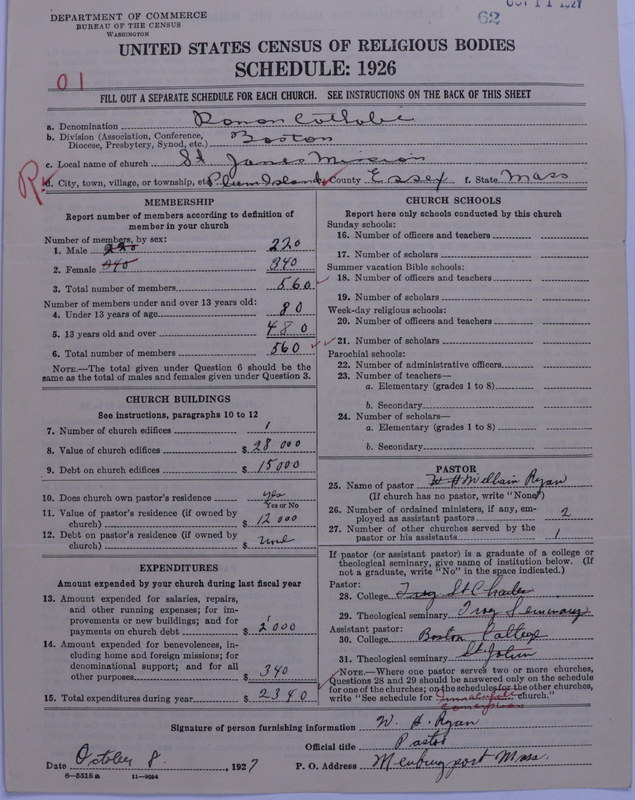 DEPARTMENT OF COMMERCE
BUREAU OF THE CENSUS
WASHINGTON
62
OCT 11 1927
UNITED STATES CENSUS OF RELIGIOUS BODIES
SCHEDULE: 1926
01
FILL OUT A SEPARATE SCHEDULE FOR EACH CHURCH. SEE INSTRUCTIONS ON THE BACK OF THIS SHEET
a. Denomination Roman Catholic
b. Division (Association, Conference, Diocese, Presbytery, Synod, etc.) Boston
c. Local name of church St James Mission
d. City, town, village, or township, etc. Plum Island County Essex f. State Mass
R
MEMBERSHIP
Report number of members according to definition of
member in your church
Number of members, by sex:
1. Male 220 220
2. Female 340 340
3. Total number of members 560
Number of members under and over 13 years old:
4. Under 13 years of age 80
5. 13 years old and over 480
6. Total number of members 560
NOTE.—The total given under Question 6 should be
same as the total of males and females given under Question 3.
CHURCH BUILDINGS
See instructions, paragraphs 10 to 12
7. Number of church edifices 1
8. Value of church edifices $ 28 000
9. Debt on church edifices $ 15000
10. Does church own pastor's residence yes
Yes or No
11. Value of pastor's residence (if owned by
church) $ 12 000
12. Debt on pastor's residence (if owned by
church) $
EXPENDITURES
Amount expended by your church during last fiscal year
13. Amount expended for salaries, repairs,
and other running expenses; for im-
provements or new buildings; and for
payments on church debt $ 2000
14. Amount expended for benevolences, in-
cluding home and foreign missions; for
denominational support; and for all
other purposes $ 340
15. Total expenditures during year $ 2340
CHURCH SCHOOLS
Report here only schools conducted by this church
Sunday schools:
16. Number of officers and teachers
17. Number of scholars
Summer vacation Bible schools:
18. Number of officers and teachers
19. Number of scholars
Week-day religious schools:
20. Number of officers and teachers
21. Number of scholars
Parochial schools:
22. Number of administrative officers
23. Number of teachers—
a. Elementary (grades 1 to 8)
b. Secondary
24. Number of scholars—
a. Elementary (grades 1 to 8)
b. Secondary
PASTOR
25. Name of pastor William Ryan
(If church has no pastor, write "None")
26. Number of ordained ministers, if any, em-
ployed as assistant pastors 2
27. Number of other churches served by the
pastor or his assistants 1
If pastor (or assistant pastor) is a graduate of a college or
theological seminary, give name of institution below. (If
not a graduate, write "No" in the space indicated.)
Pastor:
28. College St Charles
29. Theological seminary Troy Seminary
Assistant pastor:
30. College Boston College
31. Theological seminary St John
NOTE.—Where one pastor serves two or more churches,
Questions 28 and 29 should be answered only on the schedule
for one of the churches; on the schedules for the other churches,
write "See schedule for Immaculate Conception church."
Signature of person furnishing information W. H. Ryan
Official title Pastor
Date October 8, 1927 P. O. Address Newburyport Mass.
6—5515 a 11—9084